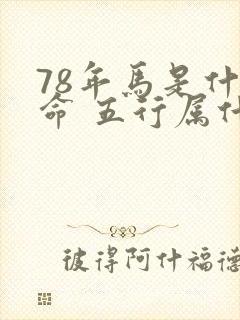 78年馬是什
命 五行属什
彼得阿什福德